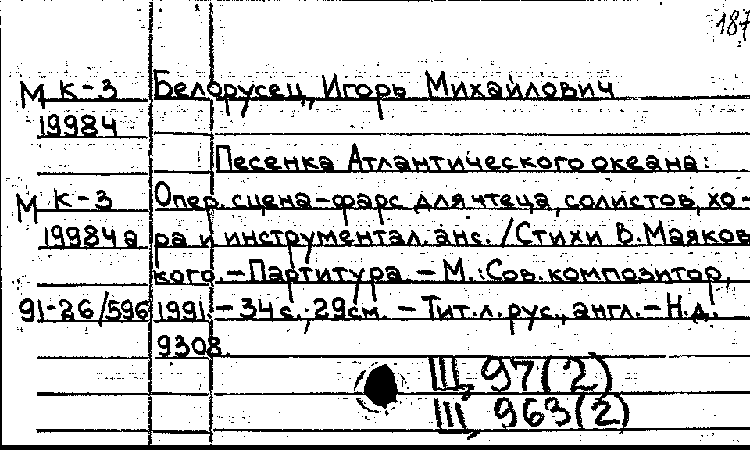 187
М К-3 Белорусец, Игорь Михайлович
19984
Песенка Атлантического океана:
М К-3 Опер. сцена-фарс для чтеца, солистов, хо-
19984а ра и инструментал. анс. / Стихи В. Маяков
кого. – Партитура. – М.: Сов. композитор,
91-26/596 1991. – 34 с.; 29см. – Тит. л. рус., англ. – Н.д.
9308.
Щ, 97(2)
Щ, 963(2)